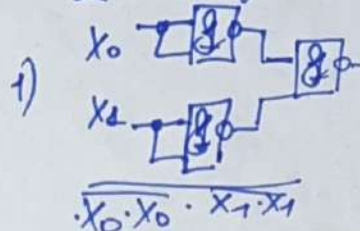 X₀ &
1) &
X₁ &
·X̅₀·̅X̅₀ · X̅₁·̅X̅₁